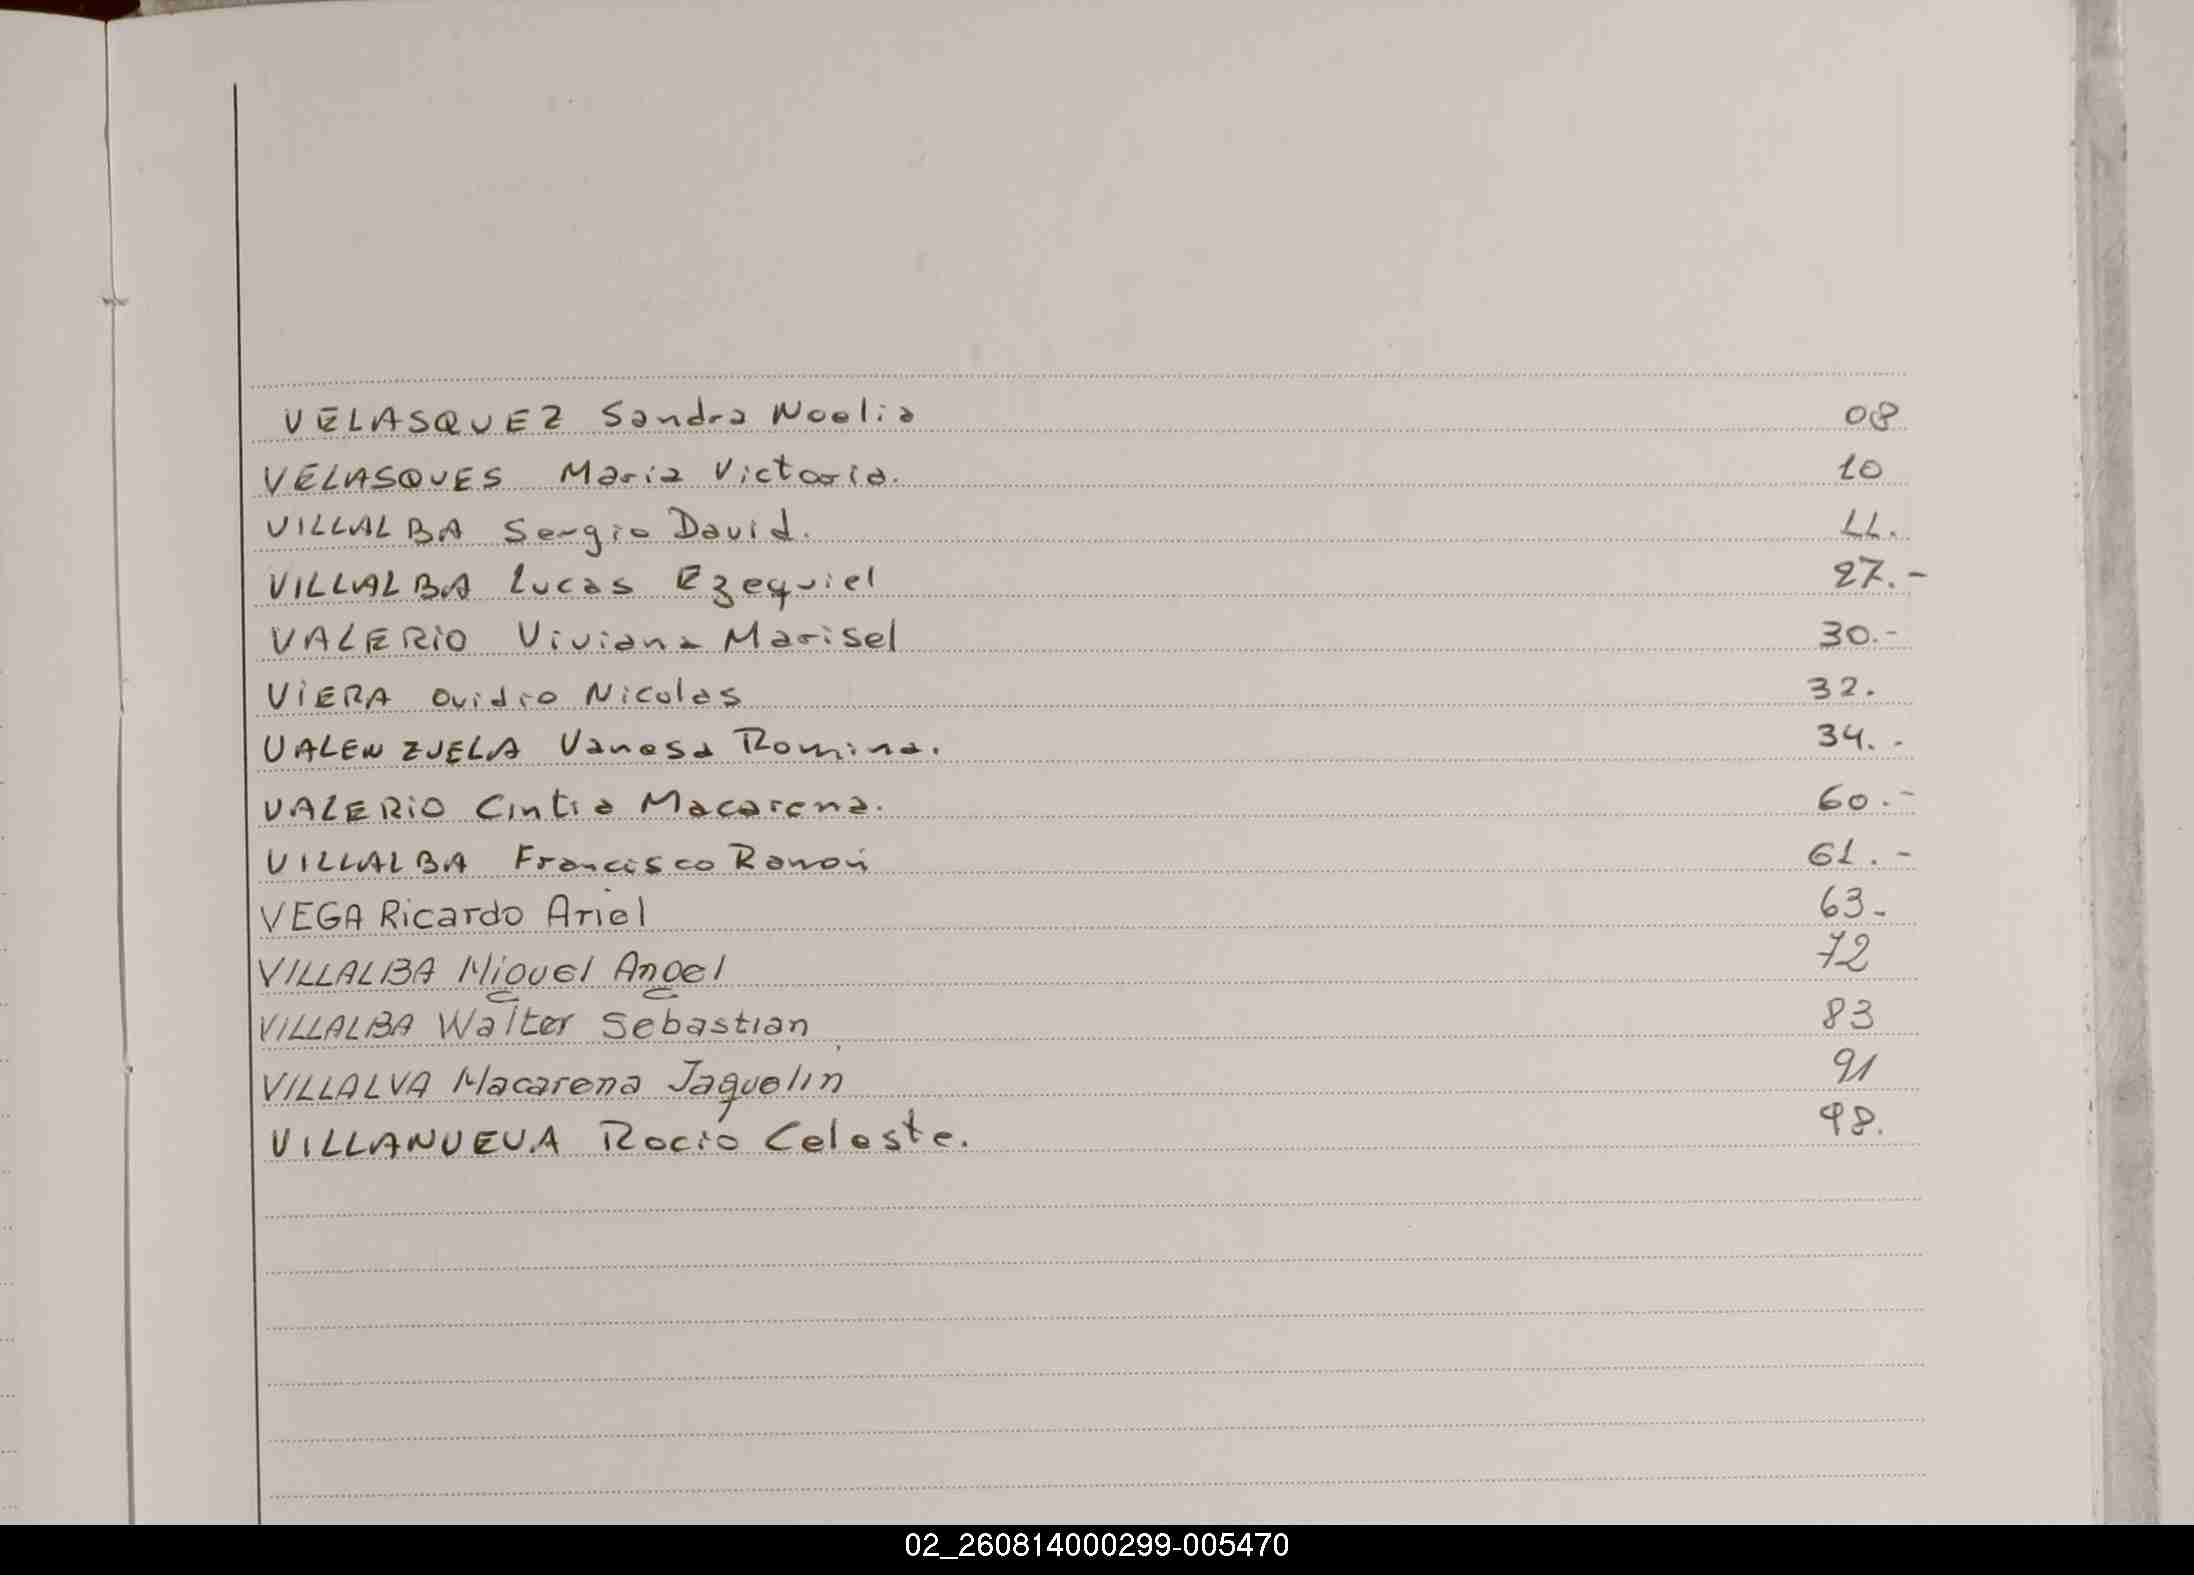 VELASQUEZ Sandra Noelia 08
VELASQUES Maria Victoria. 10
VILLALBA Sergio David. 11.
VILLALBA Lucas Ezequiel 27.-
VALERIO Viviana Marisel 30.-
VIERA Ovidio Nicolas 32.
VALENZUELA Vanesa Romina. 34.-
VALERIO Cintia Macarena. 60.-
VILLALBA Francisco Ramón 61.-
VEGA Ricardo Ariel 63-
VILLALBA Miguel Angel 72
VILLALBA Walter Sebastian 83
VILLALVA Macarena Jaquelin 91
VILLANUEVA Rocio Celeste. 98.
02_260814000299-005470